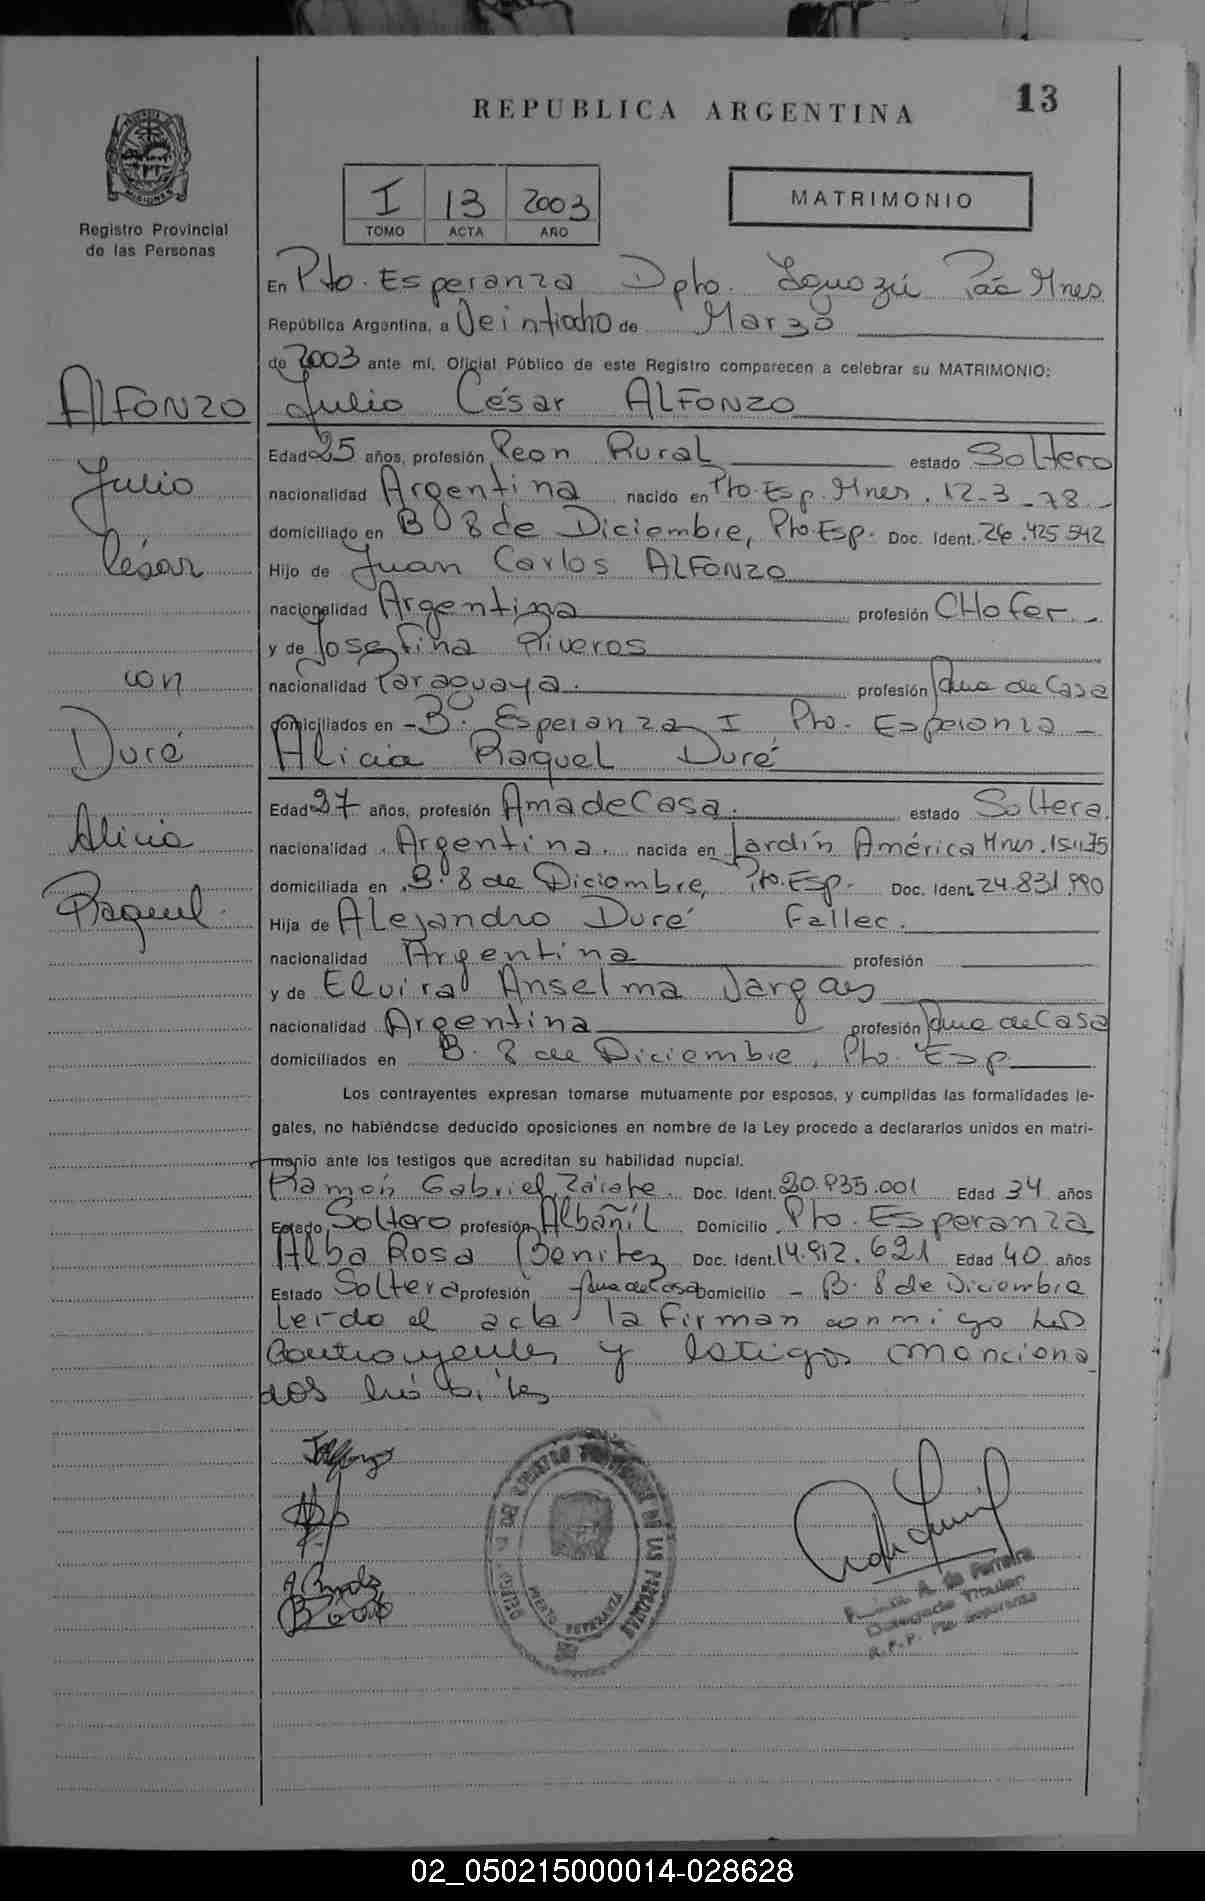 REPUBLICA ARGENTINA
13
MISIONES
Registro Provincial
de las Personas
I 13 2003
TOMO ACTA AÑO
MATRIMONIO
En Pto. Esperanza Dpto. Iguazú Pcia Mnes
República Argentina, a Veintiocho de Marzo
de 2003 ante mí, Oficial Público de este Registro comparecen a celebrar su MATRIMONIO:
ALFONZO
Julio César ALFONZO
Edad 25 años, profesión Peon Rural estado Soltero
Julio
nacionalidad Argentina nacido en Pto. Esp. Mnes. 12-3-78.-
domiciliado en B° 8 de Diciembre, Pto Esp. Doc. Ident. 26.425.542
César
Hijo de Juan Carlos ALFONZO
nacionalidad Argentina profesión CHofer.-
y de Josefina Riveros
con
nacionalidad Paraguaya. profesión Ama de Casa
domiciliados en -B° Esperanza I Pto. Esperanza-
Duré
Alicia Raquel Duré
Edad 27 años, profesión Ama de Casa. estado Soltera.
Alicia
nacionalidad Argentina. nacida en Jardín América Mnes. 15.11.75
domiciliada en B° 8 de Diciembre, Pto. Esp. Doc. Ident. 24.831.990
Raquel.
Hija de Alejandro Duré Fallec.
nacionalidad Argentina profesión
y de Elvira Anselma Vargas
nacionalidad Argentina profesión Ama de Casa
domiciliados en B. 8 de Diciembre, Pto. Esp
Los contrayentes expresan tomarse mutuamente por esposos, y cumplidas las formalidades le-
gales, no habiéndose deducido oposiciones en nombre de la Ley procedo a declararlos unidos en matri-
monio ante los testigos que acreditan su habilidad nupcial.
Ramón Gabriel Zárate. Doc. Ident. 20.935.001 Edad 34 años
Estado Soltero profesión Albañil Domicilio Pto. Esperanza
Alba Rosa Benitez Doc. Ident. 14.912.621 Edad 40 años
Estado Soltera profesión Ama de Casa Domicilio - B. 8 de Diciembre
Leído el acta la firman conmigo los
contrayentes y testigos menciona
dos hábiles
REGISTRO PROVINCIAL DE LAS PERSONAS
PUERTO ESPERANZA
A. de Ferreira
Delegada Titular
R.P.P. Pto. Esperanza
02_050215000014-028628